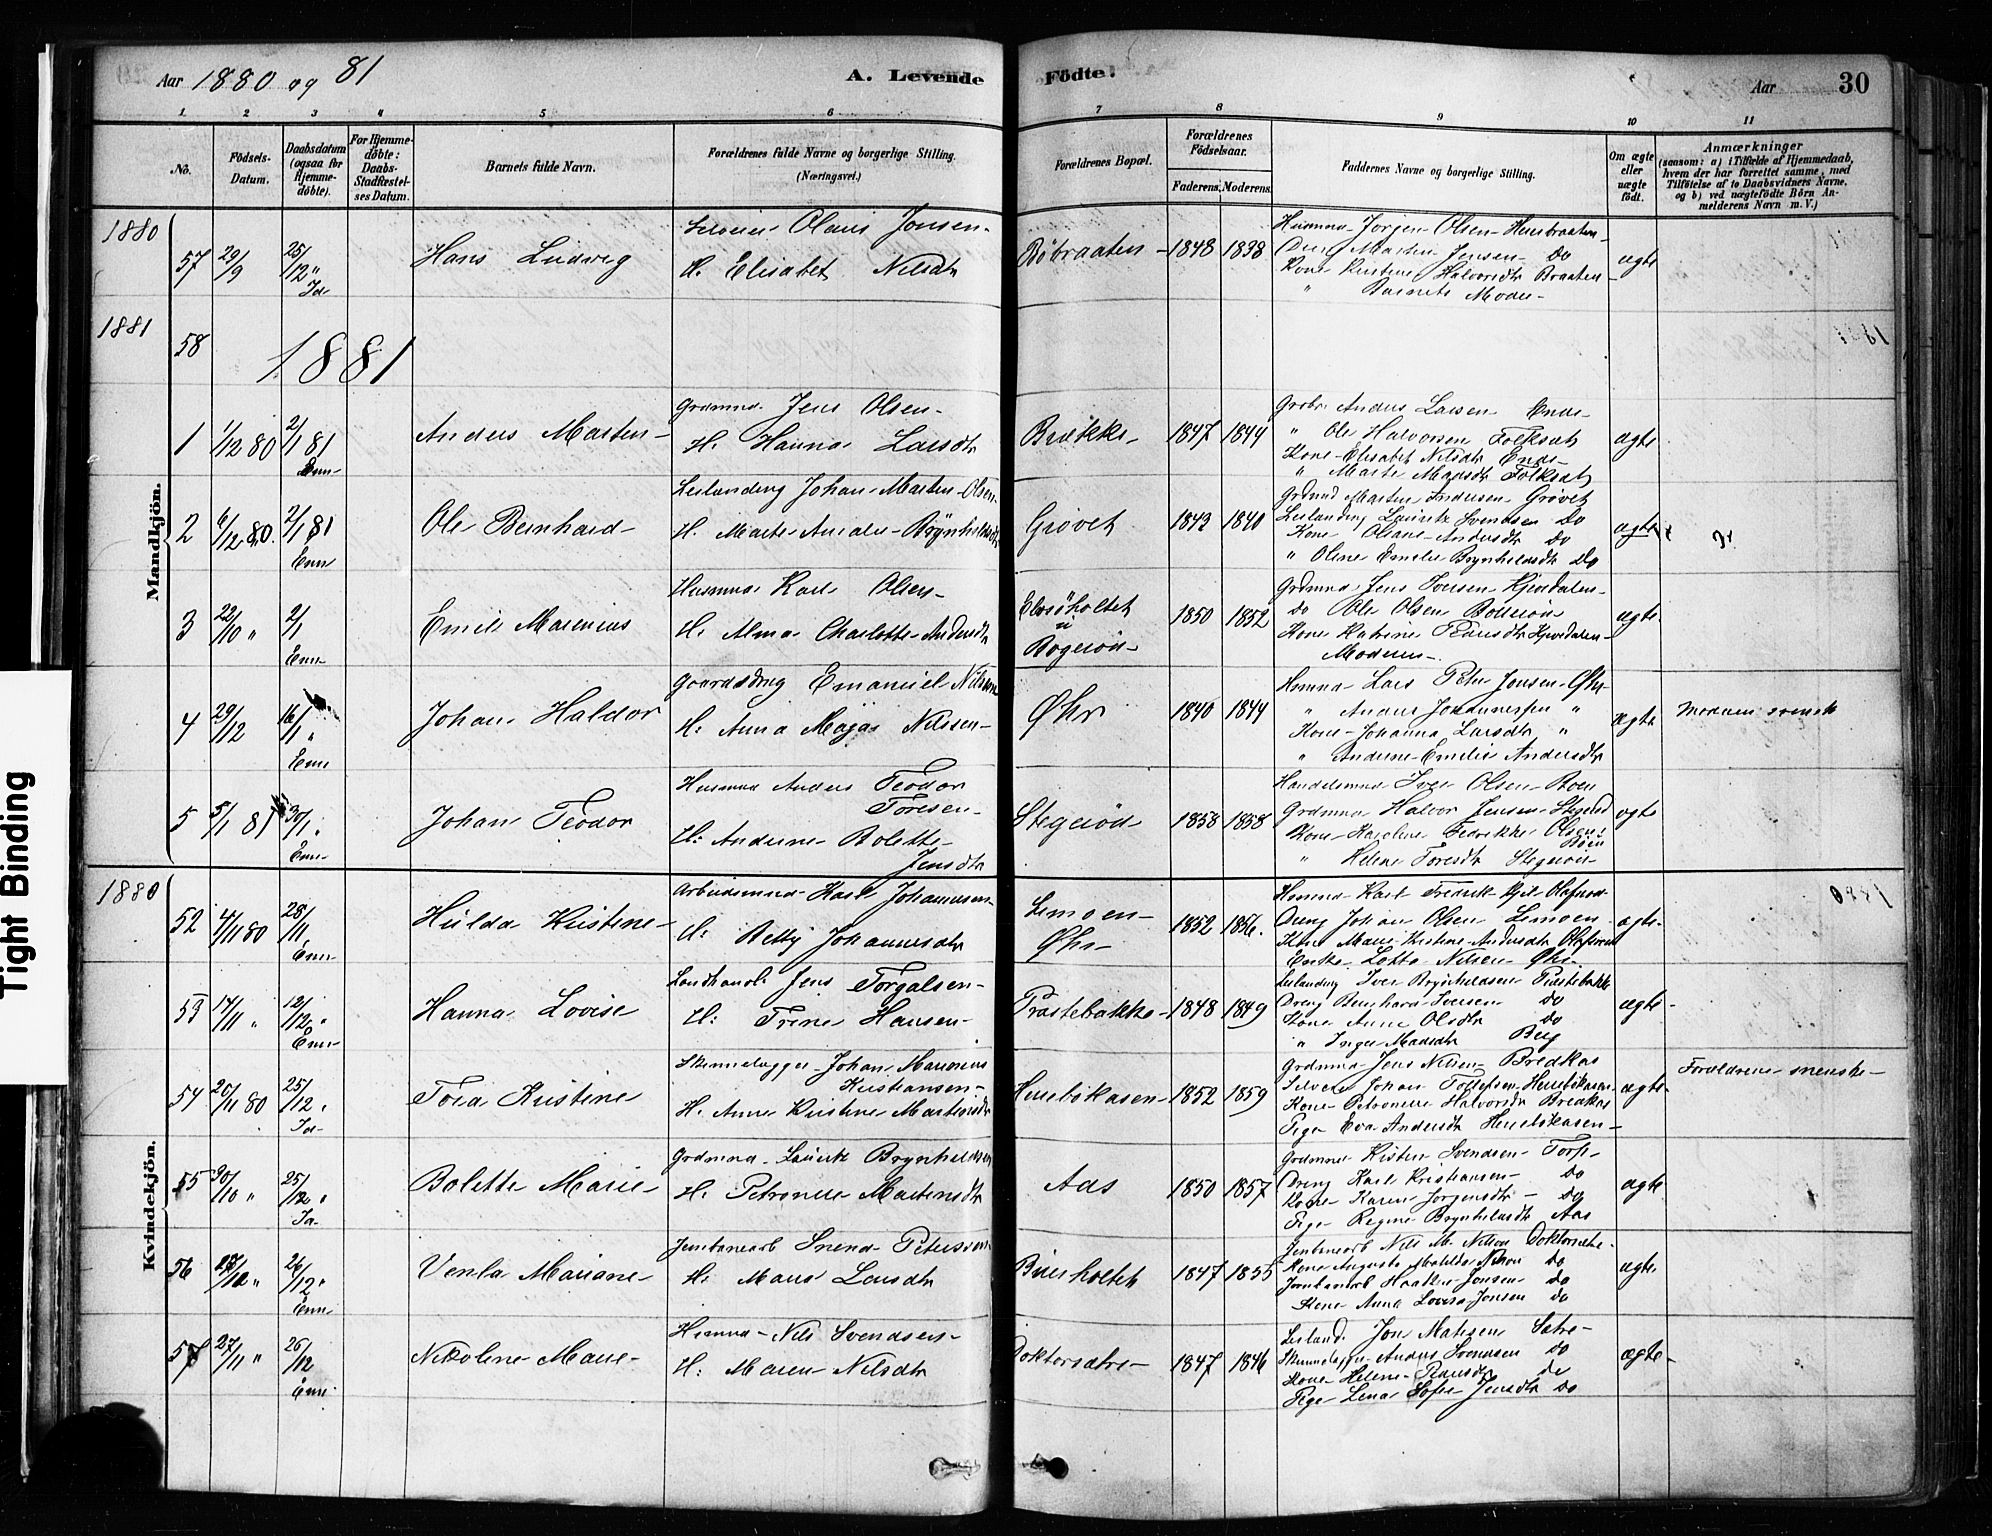 Aar 1880 og 81
A. Levende
Födte.
Aar
30
1.
2
3
4
5
6
7
8
9
10
11
No.
Födsels-
Datum.
Daabsdatum
(ogsaa for
Hjemme-
döbte).
For Hjemme-
döbte:
Daabs-
Stadfæstel-
ses Datum.
Barnets fulde Navn.
Forældrenes fulde Navne og borgerlige Stilling.
(Næringsvei.)
Forældrenes Bopæl.
Forældrenes
Födselsaar.
Faderens.
Moderens.
Faddernes Navne og borgerlige Stilling.
Om ægte
eller
uægte
födt.
Anmærkninger
(saasom: a) i Tilfælde af Hjemmedaab,
hvem der har forrettet samme, med
Tilföielse af to Daabsvidners Navne,
og b) ved uægtefödte Börn An-
melderens Navn m. V.)
Mandkjön.
1880
57 29/9 25/12 " Id-
Hans Ludvig
Olaus Jonsen-
H. Elisabet Nilsdtr
Böbraaten
1848 1838
Jørgen Olsen
Dreng Martin Jensen Do
Kone Kristine Halvorsdtr Braaten
" Barnets Moder-
ægte
1881
58
1881
1 1/12 80 2/1 81 Enn-
Anders Marten-
Grdmnd. Jens Olsen-
H. Hanna Larsdtr
Brække-
1847 1844
Grdbr Anders Larsen Ende-
" Ole Halvorsen Folksæt
Kone Elisabet Nilsdtr Ende-
" Marte Madsdtr Folksæt
ægte
2 6/12 80. 2/1 81 Enn
Ole Bernhard
Leilænding Johan Marten Olsen
H. Marte Amalie Brynhildsdtr
Grøvet
1843 1840
Grdmnd Marten Andersen Grøvet
Leilænding Lauritz Svendsen Do
Kone Oliane Andersdtr Do
" Oline Emelie Brynhildsdtr Do
ægte
3 22/10 " 2/1 Enn-
Emil Marinius
Husmnd Karl Olsen-
H. Alma Charlotte Andersdtr
Elvsöholtet
i
Bogerød-
1850 1852
Grdmnd Jens Iversen Kjerrdalen-
Do Ole Olsen
Kone Katrine Kjerrdalen-
Moderen-
ægte
4 29/12 16/1 " Enn
Johan Haldor
Gaardsdrng Emanuel Nilsson
H. Anna Maja Nilssen-
Øhr
1840 1844
Hmmnd Lars Peter Jonsen Øhr
" Anders Johannessen "
Kone Johanna Larsdtr "
" Anderne Emilie Andersdtr
ægte
Moderen svensk
5 5/1 81 30/1 " Enn-
Johan Teodor
Husmnd Anders Teodor
Toresen-
H. Anderne Bolette-
Jensdtr
Stegerød
1858 1858
Handelsmnd Iver Olsen Boen
Grdmnd Halvor Jensen Stegerød
Kone Karoline Fredrikke Olsen
Boen
" Helene Toresdtr Stegerød
ægte
Kvindekjön.
1880
52 4/11 80 28/11 " Enn-
Hulda Kristine-
Arbeidsmnd Karl Johannesen
H. Betty Johannesdtr
Lemoen-
Øhr-
1852 1856.
Hmmnd Karl Fredrik
Dreng Johan Olsen Lemoen
Kone Marie Kristine Andersdtr
Enke Lotte Nilsen Øhr
ægte-
53 14/11 " 12/12 " Enn-
Hanna Lovise
Landhandl Jens Torgalsen-
H. Trine Hansen-
Præstebakke
1848 1849
Leilænding Iver Brynhildsen Præstebakke
Dreng Bernhard Iversen Do
Kone Anne Olsdtr Do
" Inger Madsdtr Berg
ægte-
54 20/11 80 25/12 " Id-
Tora Kristine
Skinnelægger Johan Marinius
Kristiansen-
H. Anne Kristine
1852 1859
Grdmnd Jens Nilsen Bredkas
Johan Tollefsen
Kone Petronelle Halvorsdtr Bredkas
Pige Eva Andersdtr
ægte
Forældrene svenske-
55 30/10 " 25/12 " Id-
Bolette Marie-
Grdmnd Lauritz Brynhildsen
H. Petronelle Martensdtr
Aas
1850 1857
Grdmnd Kristen Svendsen Torp-
Dreng Karl Kristiansen- Do
Kone Karen Jørgensdtr- Do
Pige Regine Brynhildsdtr Aas
ægte
56 26/12 " Enn
Venla Mariane-
Jernbanearb Svend Petersson
H. Maria Larsdtr
1847 1855
Jernbanearb Nils M. Nilson Doktorsætre-
Kone Augusta Matilda Nilson Do
Jernbanearb Haaken Jonsen Do
Kone Anna Lovisa Jonsen Do
ægte
57 27/11 " 26/12 Enn.
Nikoline Marie-
Hmmnd- Nils Svendsen-
H. Maren Nilsdtr
Doktorsætre-
1847 1846
Leilænd. Jon Matisen Sætre-
Skinnelægger Anders Svendsen Do
Kone Helene Do
Pige Lena Sofie Jensdtr Do
ægte-
Tight Binding